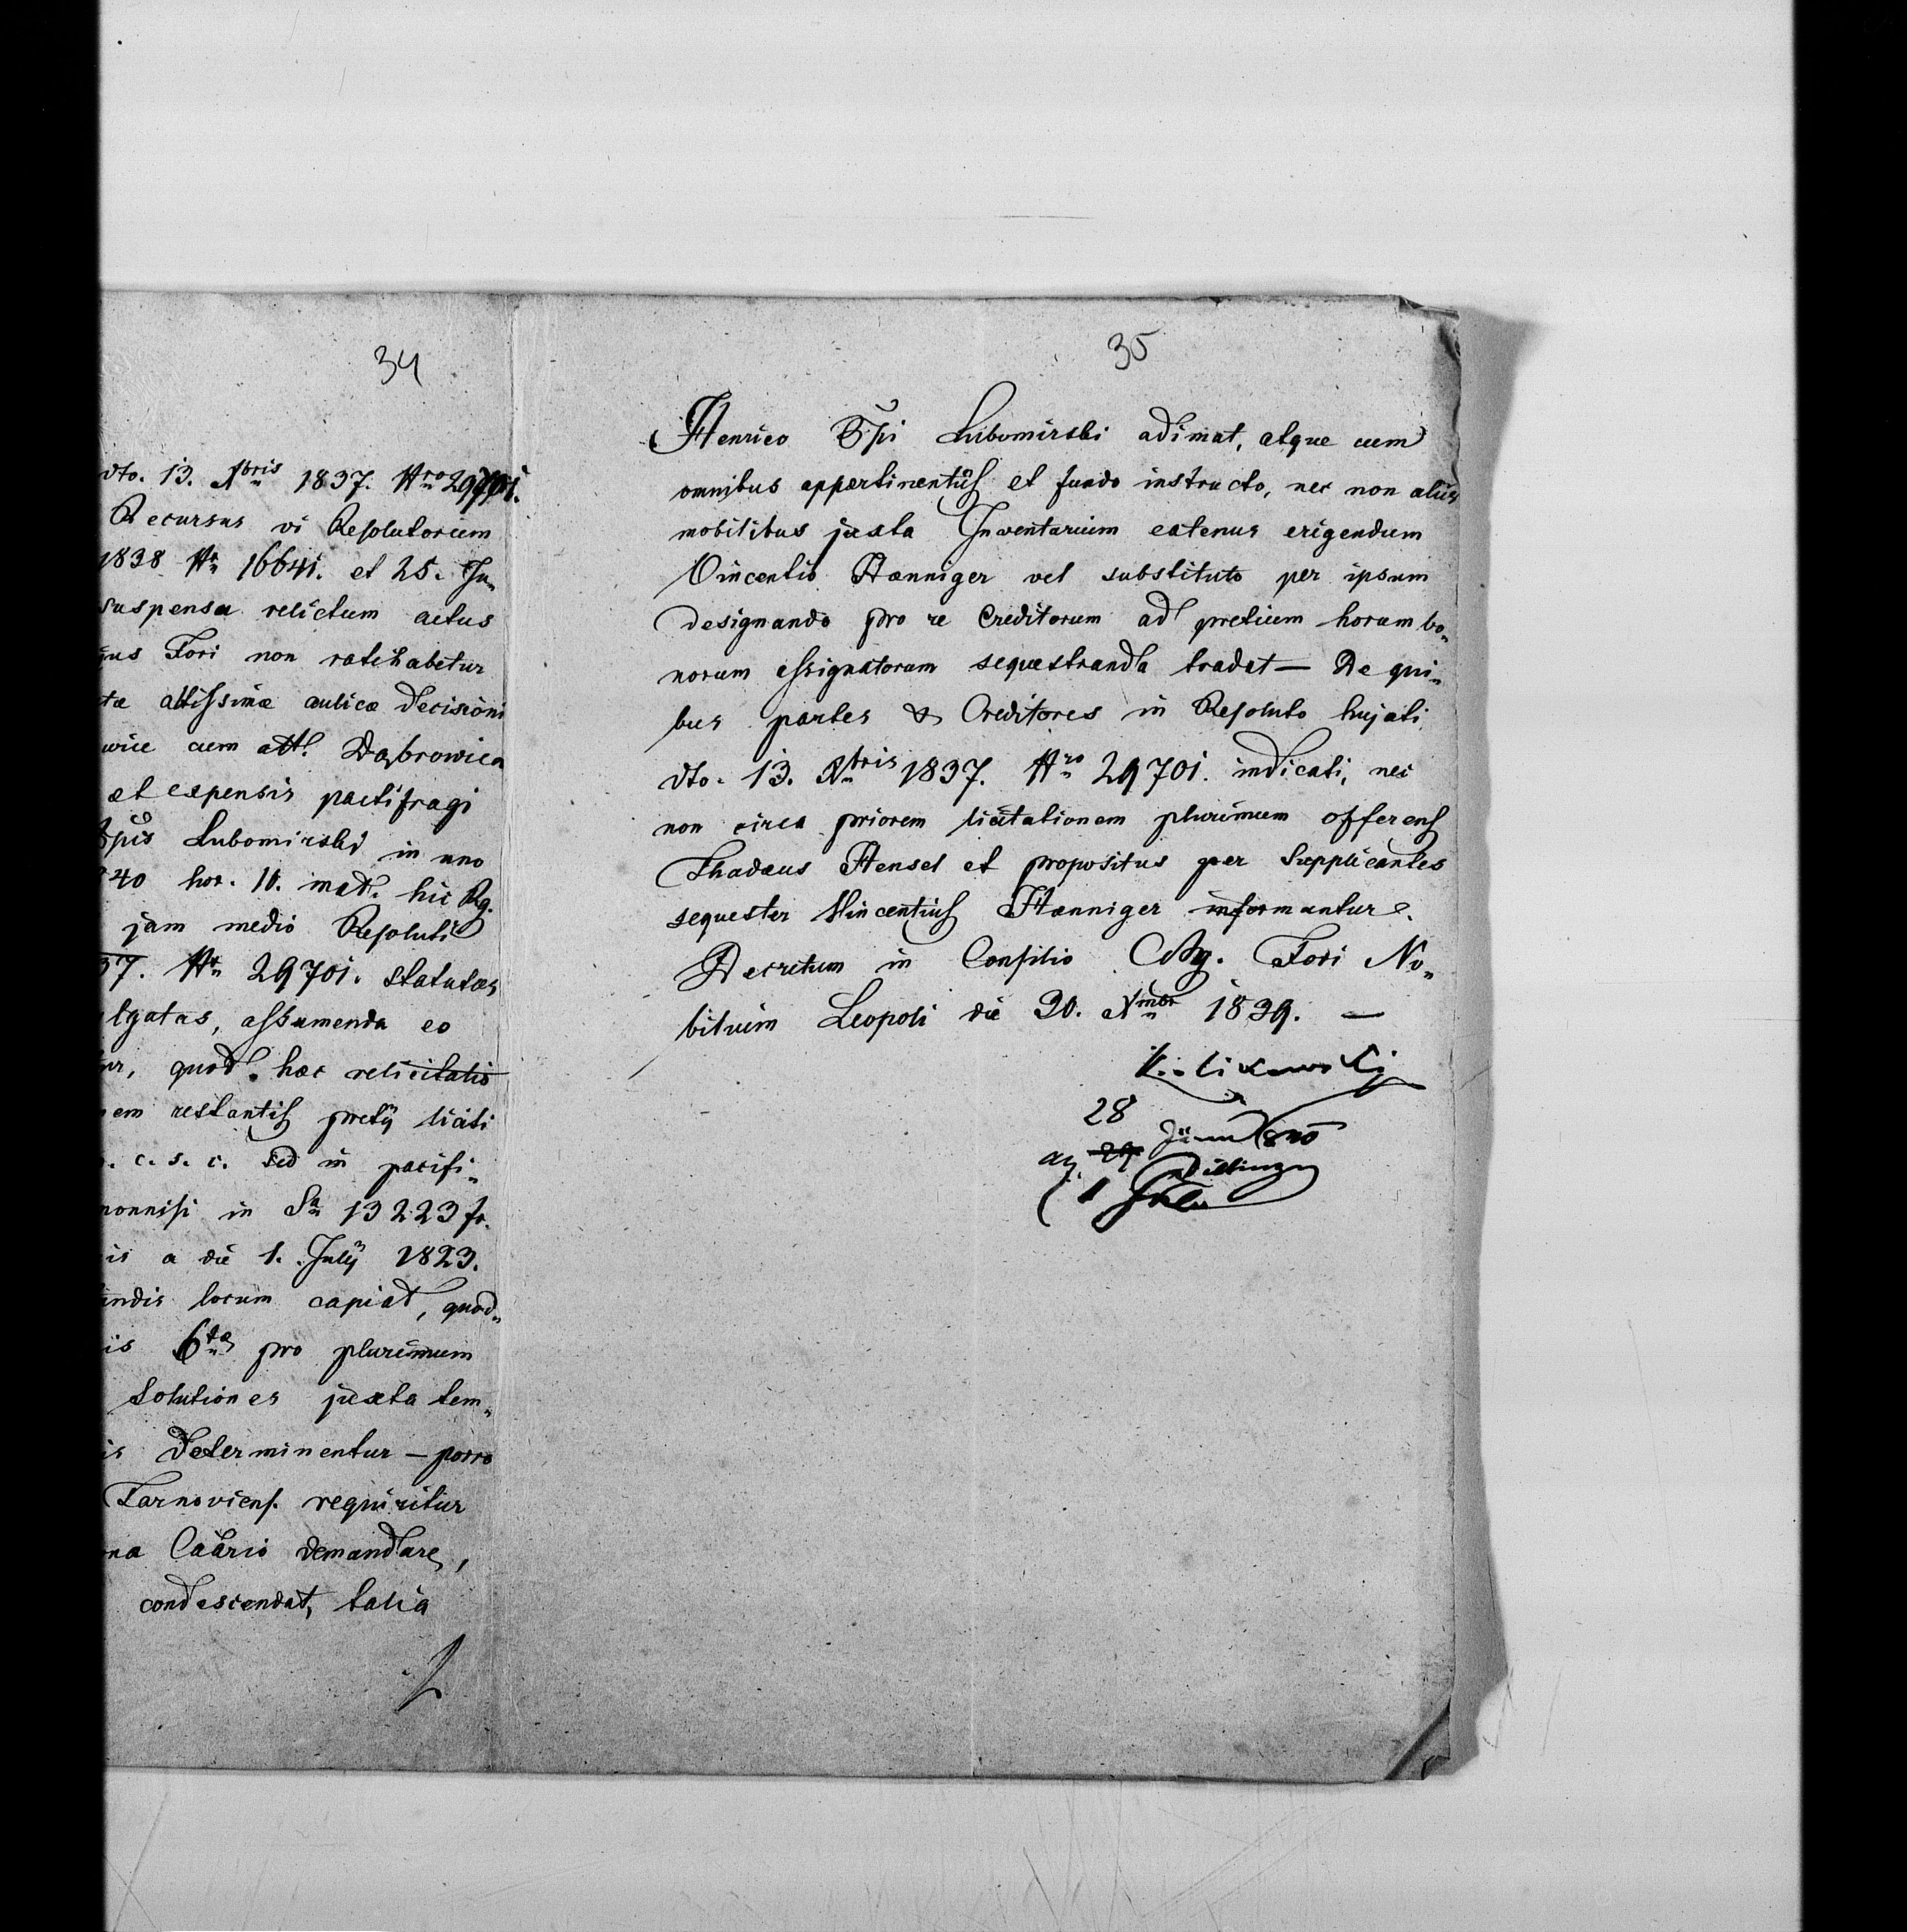 34
dto. 13. Nbris 1837. Nro 29701.
Recursus vi Resolutorium
1838 Nr 16641. et 25. Ju„
suspensa relictum actus
jus Fori non ratihabetur
tæ altissimæ aulicæ decisioni
wice cum att. Dąbrowica
et expensis pactifragi
Ppis Lubomirski in uno
840 hor. 10. mat. hic Rg.
jam medio Resoluti
37. Nr 29701. statutas
lgatas, assumenda eo
ur, quod hæc relicitatio
em restantis pretÿ liciti
. c. s. c. sed in pacifi„
nonnisi in Sa 13223 fr.
is a die 1. Julÿ 1823.
andis locum capiat, quod„
is 6ta pro plurimum
Solutiones juxta tem„
is determinentur — porro
Tarnoviens. requiritur
ona Caario demandare,
condescendat, talia
35
Henrico Ppi Lubomirski adimat, atque cum
omnibus appertinentiis et fundo instructo, nec non aliis
mobilibus juxta Inventarium eatenus erigendum
Vincentio Hænniger vel substituto per ipsum
designando pro re Creditorum ad pretium horum bo„
norum assignatorum sequestranda tradat — De qui„
bus partes & Creditores in Resoluto hujati
dto. 13. Nbris 1837. Nro 29701. indicati, nec
non circa priorem licitationem plurimum offerens
Thadæus Hensel et propositus per Supplicantes
sequester Vincentius Hænniger informantur.
Decretum in Consilio C. R. Fori No„
bilium Leopoli die 30. Xmbr 1839. —
28
29